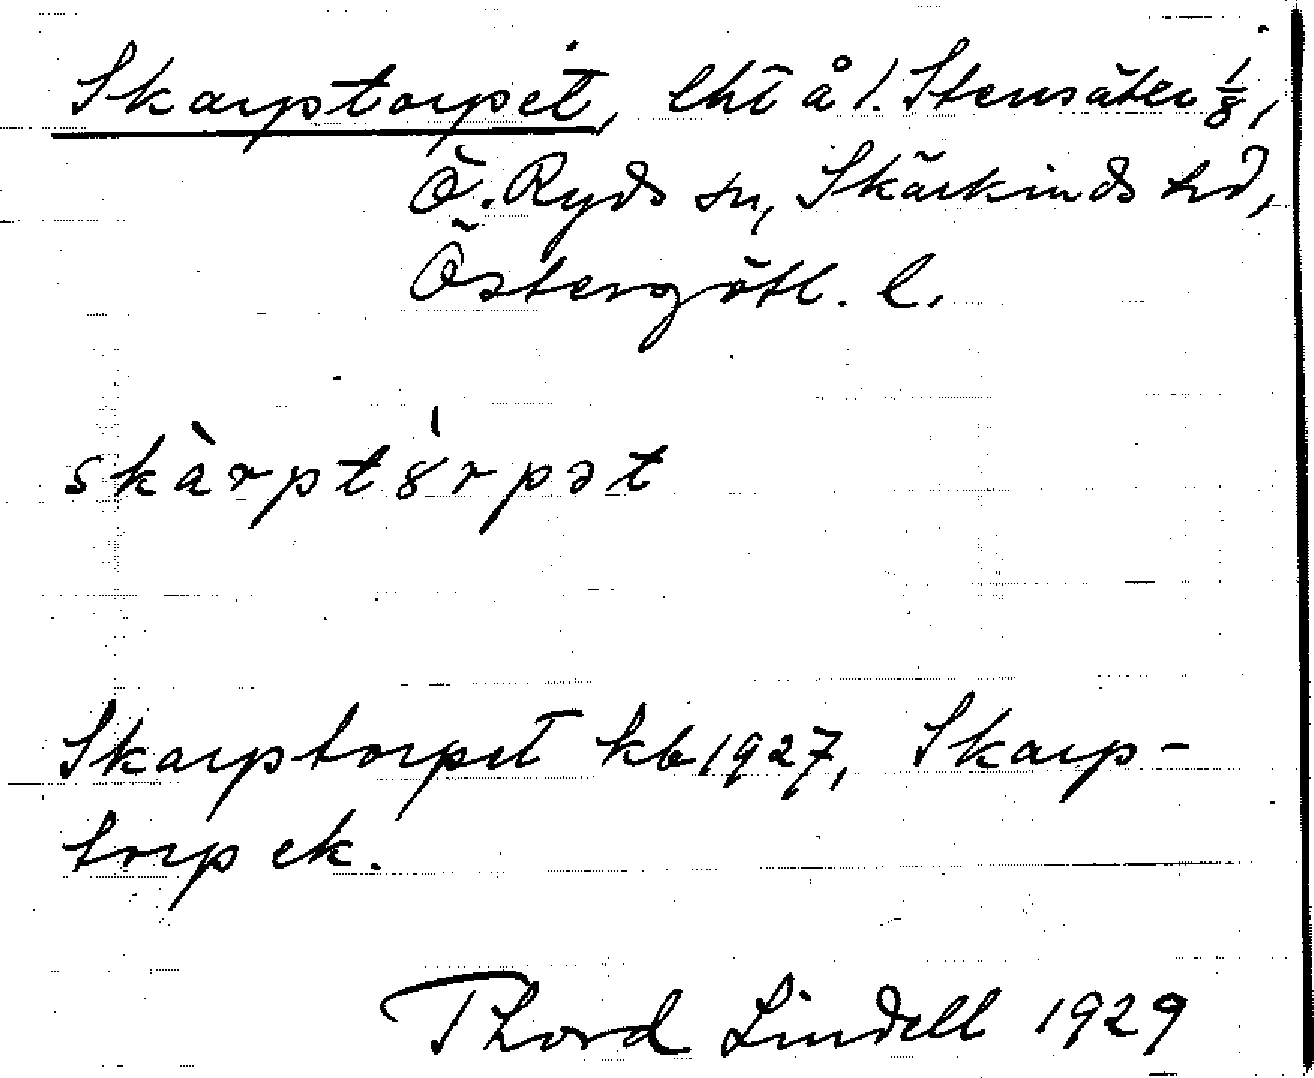 Skarptorpet, lht å 1. Stensäter 1/8,
Ö. Ryds sn, Skärkinds hd,
Östergötl. l.
skàrptȣ́rpət
Skarptorpet kb 1927, Skarp-
torp ek.
Thord Lindell 1929